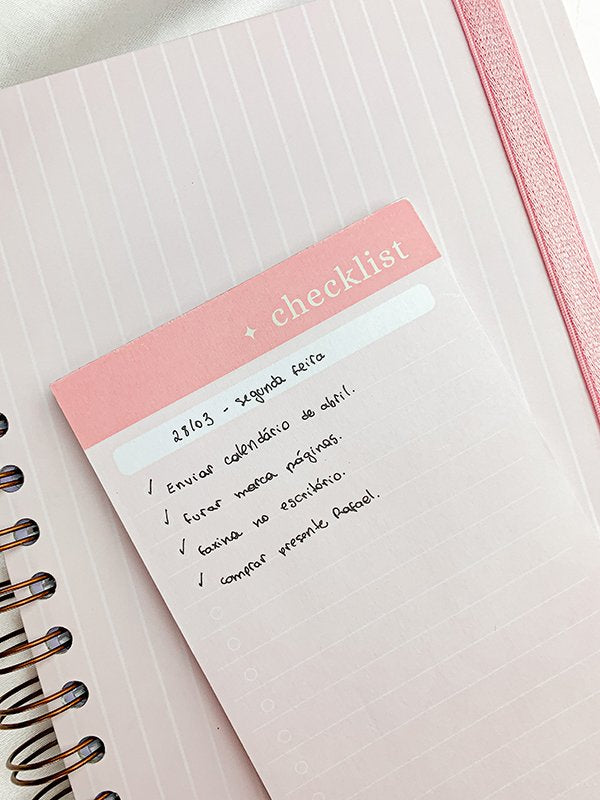 checklist
28/03 - segunda feira
✓ Enviar calendário de abril.
✓ furar marca páginas.
✓ faxina no escritório.
✓ comprar presente Rafael.